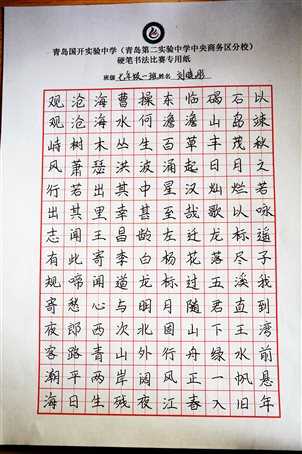 青岛国开实验中学（青岛第二实验中学中央商务区分校）
硬笔书法比赛专用纸
班级 七年级一班 姓名 刘晓彤
观沧海曹操东临碣石以
观沧海水何澹澹山岛竦
峙树木丛生百草丰茂秋
风萧瑟洪波涌起日月之
行若出其中星汉灿烂若
出其里幸甚至哉歌以咏
志闻王昌龄左迁龙标遥
有此寄李白杨花落尽子
规啼闻道龙标过五溪我
寄愁心与明月随君直到
夜郎西次北固山下王湾
客路青山外行舟绿水前
潮平两岸阔风正一帆悬
海日生残夜江春入旧年